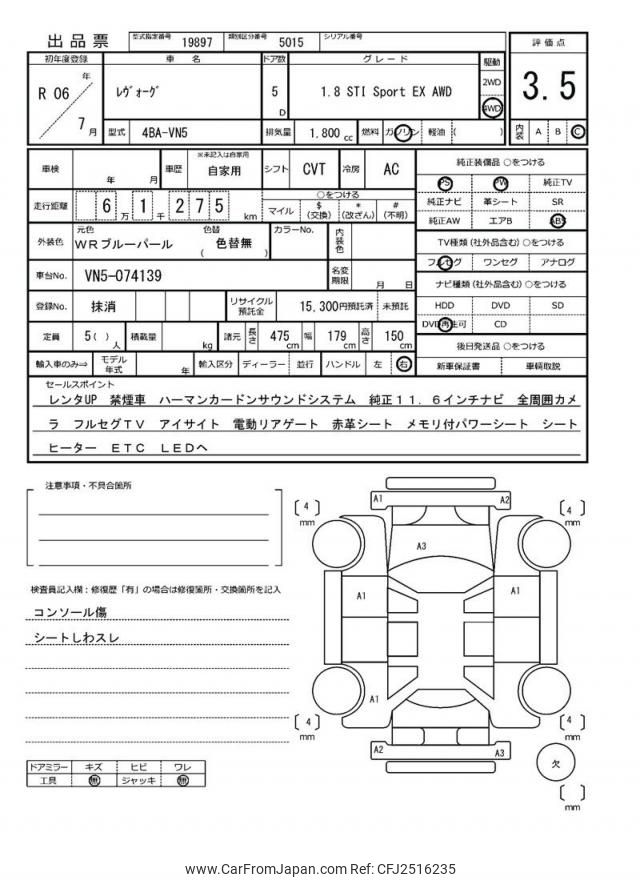 出品票 型式指定番号 19897 類別区分番号 5015 シリアル番号
初年度登録 車 名 ドア数 グレード 駆動 評価点
R 06 年 7 月 ﾚｳﾞｫｰｸﾞ 5 D 1.8 STI Sport EX AWD 2WD 4WD 3.5
型式 4BA-VN5 排気量 1.800 cc 燃料 ガソリン 軽油 ( ) 内装 A B C
車検 年 月 車歴 ※未記入は自家用 自家用 シフト CVT 冷房 AC 純正装備品 ○をつける
PS PW 純正TV
走行距離 6 万 1 千 2 7 5 km ○をつける
マイル $ (交換) * (改ざん) # (不明)
純正ナビ 革シート SR
純正AW エアB ABS
外装色 元色 WRブルーパール 色替 色替無 ( ) カラーNo. 内装色
TV種類 (社外品含む) ○をつける
フルセグ ワンセグ アナログ
車台No. VN5-074139 名変期限 月 日
ナビ種類 (社外品含む) ○をつける
登録No. 抹消 リサイクル預託金 15,300円預託済 未預託
HDD DVD SD
DVD再生可 CD
定員 5( ) 人 積載量 kg 諸元 長さ 475 cm 幅 179 cm 高さ 150 cm
後日発送品 ○をつける
輸入車のみ⇒ モデル年式 年 輸入区分 ディーラー 並行 ハンドル 左 右
新車保証書 車輌取説
セールスポイント
レンタUP 禁煙車 ハーマンカードンサウンドシステム 純正11．6インチナビ 全周囲カメ
ラ フルセグTV アイサイト 電動リアゲート 赤革シート メモリ付パワーシート シート
ヒーター ETC LEDヘ
注意事項・不具合箇所
検査員記入欄：修復歴「有」の場合は修復箇所・交換箇所を記入
コンソール傷
シートしわスレ
ドアミラー キズ ヒビ ワレ
工具 無 ジャッキ 無
A1 A2
4 mm 4 mm
A3
A1 A1
A1
4 mm 4 mm
A2 A3
欠
mm
www.CarFromJapan.com Ref: CFJ2516235